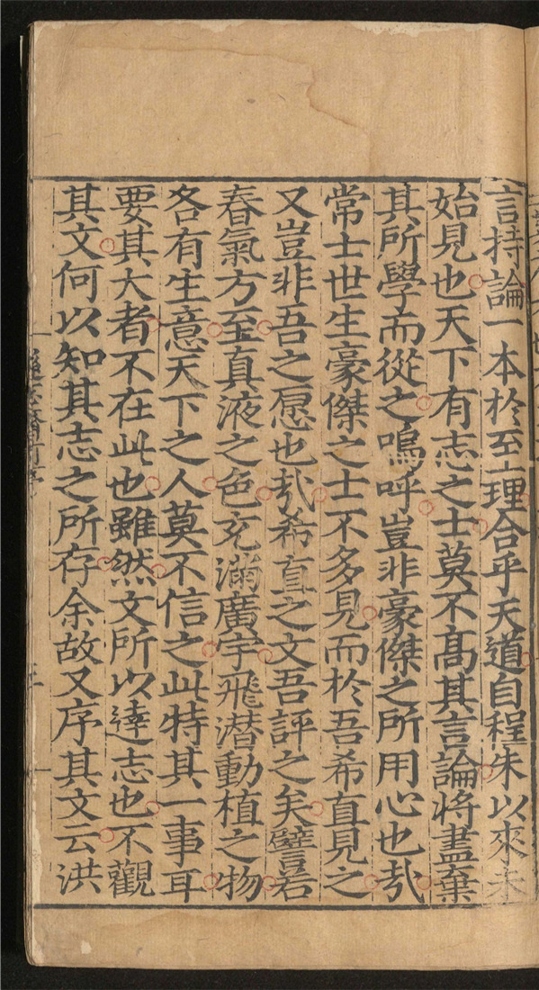 言持論一本於至理合乎天道自程朱以來未
始見也天下有志之士莫不髙其言論將盡棄
其所學而從之嗚呼豈非豪傑之所用心也㢤
常士世生豪傑之士不多見而於吾希直見之
又豈非吾之愿也㢤希直之文吾評之矣譬若
春氣方至真液之色充滿廣宇飛潜動植之物
各有生意天下之人莫不信之此特其一事耳
要其大者不在此也雖然文所以達志也不觀
其文何以知其志之所存余故又序其文云洪